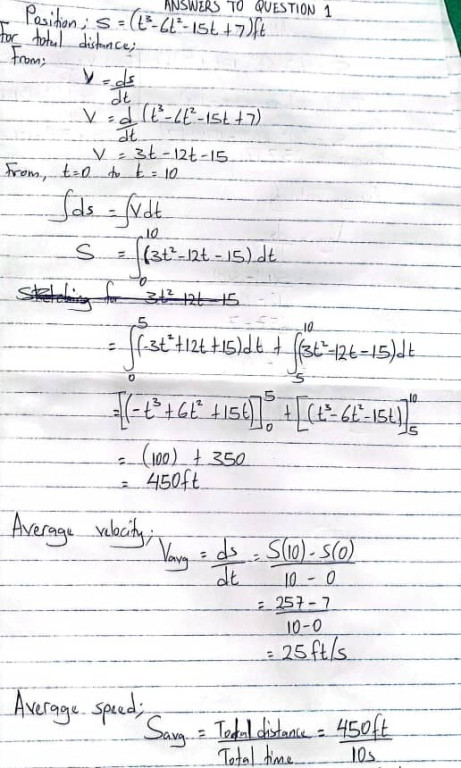 ANSWERS TO QUESTION 1
Position; S = (t³-6t²-15t+7)ft
For total distance;
From;
V = ds/dt
V = d/dt (t³-6t²-15t+7)
V = 3t-12t-15
From, t=0 to t=10
∫ds = ∫Vdt
S = ∫₀¹⁰(3t²-12t-15)dt
Sketching for 3t²-12t-15
= ∫₀⁵(-3t²+12t+15)dt + ∫₅¹⁰(3t²-12t-15)dt
= [(-t³+6t²+15t)]₀⁵ + [(t³-6t²-15t)]₅¹⁰
= (100) + 350
= 450ft
Average velocity;
Vavg = ds/dt = S(10)-S(0)/10-0
= 257-7/10-0
= 25ft/s
Average speed;
Savg = Total distance/Total time = 450ft/10s